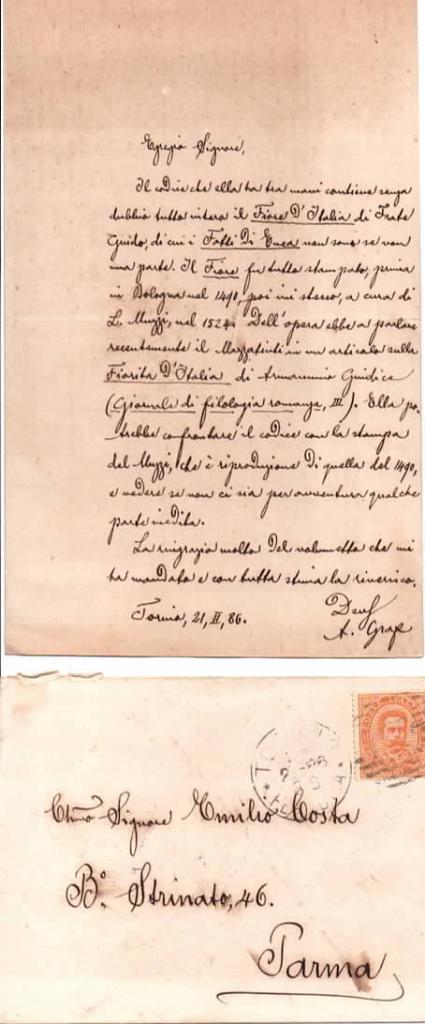 Egregio Signore,
Il codice che ella ha tra mani contiene senza
dubbio tutto intero il Fiore D'Italia di Frate
Guido, di cui i Fatti Di Enea non sono se non
una parte. Il Fiore fu tutto stampato, prima
in Bologna nel 1490, poi ivi stesso, a cura di
L. Muzzi, nel 1824. Dell'opera ebbe a parlare
recentemente il Mazzatinti in un articolo sulla
Fiorita D'Italia di Armannino Giudice
(Giornale di filologia romanza, III). Ella po-
trebbe confrontare il codice con la stampa
del Muzzi, che è riproduzione di quella del 1490,
e vedere se non ci sia per avventura qualche
parte inedita.
La ringrazio molto del volumetto che mi
ha mandato e con tutta stima la riverisco.
Torino, 21, II, 86.
A. Graf
Chmo Signore Emilio Costa
Bo. Strinato, 46.
Parma